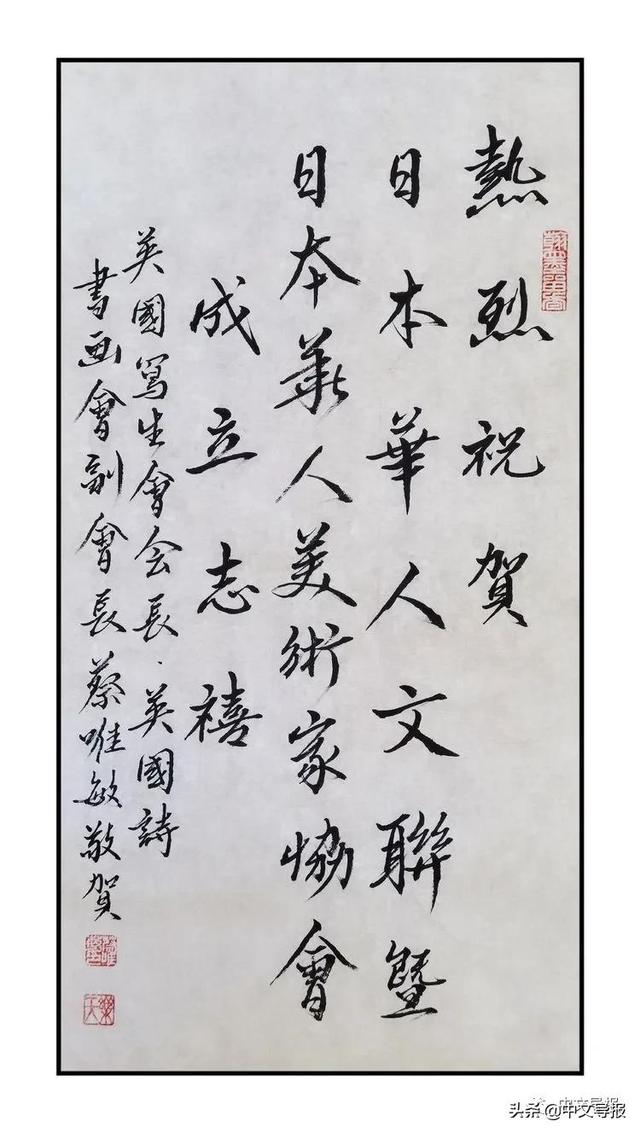 熱烈祝賀
日本華人文聯暨
日本華人美術家協會
成立志禧
英國寫生會会長·英國詩
書画會副會長蔡唯敏敬賀
中文导报
头条@中文导报